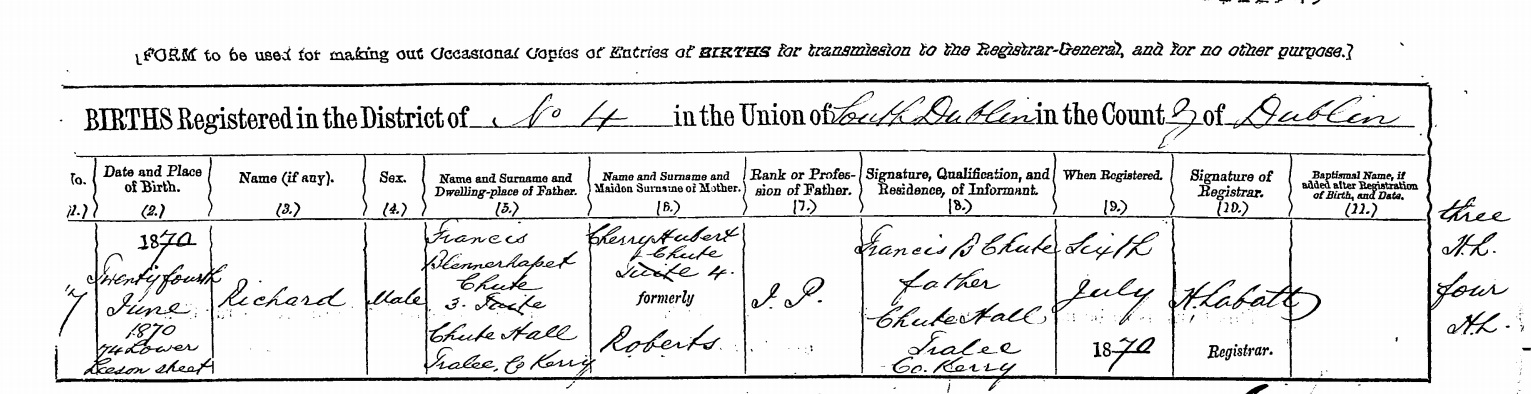 [FORM to be used for making out Occasional Copies of Entries of BIRTHS for transmission to the Registrar-General, and for no other purpose.]
BIRTHS Registered in the District of No 4 in the Union of South Dublin in the County of Dublin
No.
(1.)
Date and Place
of Birth.
(2.)
Name (if any).
(3.)
Sex.
(4.)
Name and Surname and
Dwelling-place of Father.
(5.)
Name and Surname and
Maiden Surname of Mother.
(6.)
Rank or Profes-
sion of Father.
(7.)
Signature, Qualification, and
Residence, of Informant.
(8.)
When Registered.
(9.)
Signature of
Registrar.
(10.)
Baptismal Name, if
added after Registration
of Birth, and Date.
(11.)
7
1870
Twenty fourth
June
1870
74 Lower
Leeson street
Richard
Male
Francis
Blennerhasset
Chute
3. Tuite
Chute Hall
Tralee, Co Kerry
Cherry Hubert
Chute
Tuite 4.
formerly
Roberts
J. P.
Francis B Chute
father
Chute Hall
Tralee
Co. Kerry
Sixth
July
1870
H Labatt
Registrar.
three
H.L.
four
H.L.